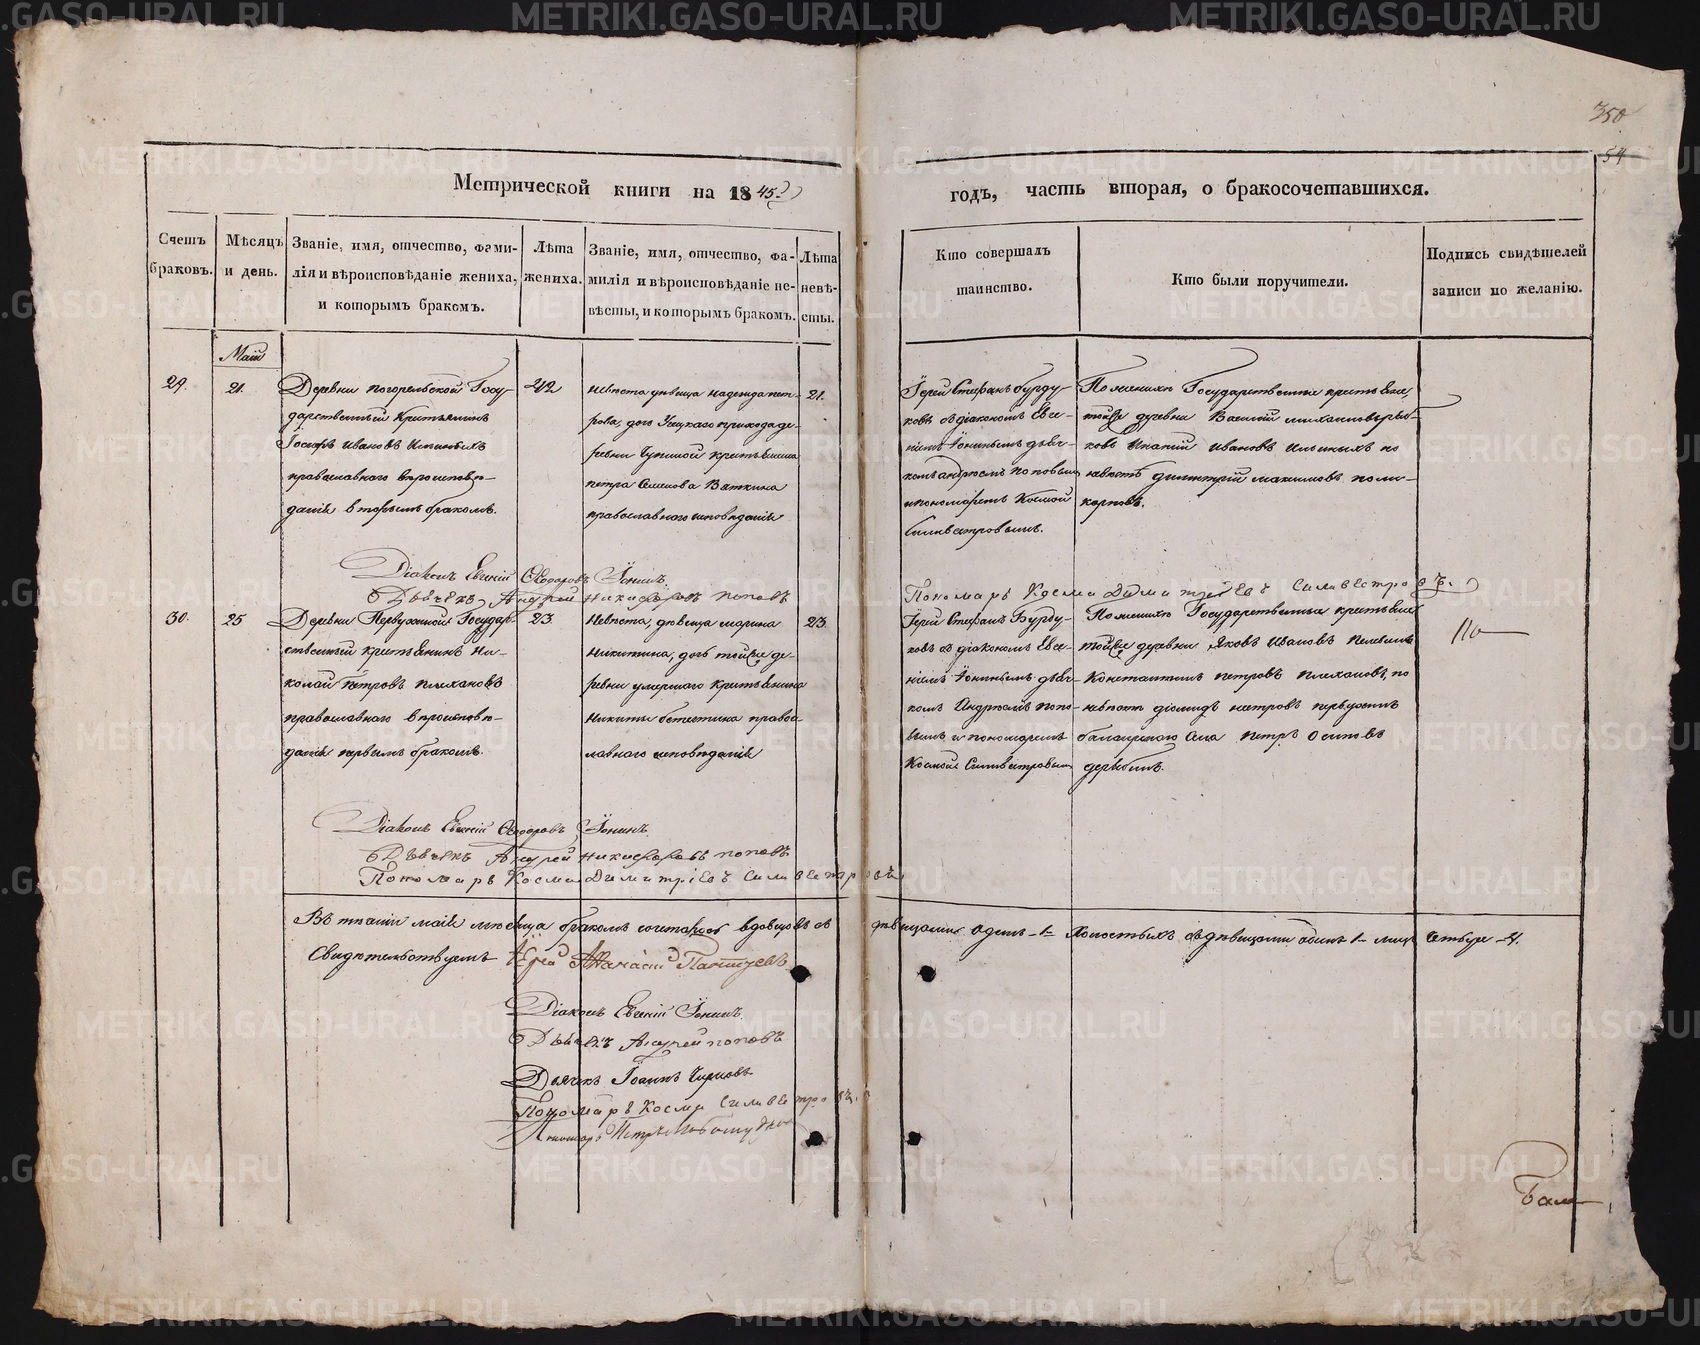 350
54
Метрической книги на 1845
годъ, часть вторая, о бракосочетавшихся.
Счетъ браковъ.
Мѣсяцъ и день.
Званіе, имя, отчество, фами-
лія и вѣроисповѣданіе жениха,
и которымъ бракомъ.
Лѣта
жениха.
Званіе, имя, отчество, фа-
милія и вѣроисповѣданіе не-
вѣсты, и которымъ бракомъ.
Лѣта
невѣ-
сты.
Кто совершалъ
таинство.
Кто были поручители.
Подпись свидѣтелей
записи по желанію.
Маій
29.
21.
Деревни Погорельской Госу-
дарственный Крестьянинъ
Іосифъ Ивановъ Ильиныхъ
православнаго вѣроисповѣ-
данія вторымъ бракомъ.
42
Невѣста дѣвица Надежда пет-
рова дочь Уецкаго прихода де-
ревни крестьянина
петра Семенова Вяткина
православнаго исповѣданія
21.
Іерей Стефанъ бурду-
ковъ съ діакономъ Евге-
ніемъ Іонинымъ дьяч-
комъ андреемъ поповымъ
и пономаремъ Космой
Сильвестровымъ.
По женихѣ Государственные крестьяне
тойже деревни Василій михайловъ
ковъ Ипатій Ивановъ Ильиныхъ по
невѣстѣ димитрій максимовъ поли-
карповъ.
Діаконъ Евгеній Ѳеодоровъ Іонинъ.
Дьячекъ Андрей Никифоровъ поповъ
Пономарь Косма Димитріевъ Сильвестровъ.
30.
25
Деревни Первухиной Государ-
ственный крестьянинъ Ни-
колай Петровъ Плехановъ
православнаго вѣроисповѣ-
данія первымъ бракомъ.
23
Невѣста, дѣвица марина
Никитина, дочь тойже де-
ревни умершаго крестьянина
Никиты правос-
лавнаго исповѣданія
23.
Іерей Стефанъ Бурду-
ковъ съ діакономъ Евге-
ніемъ Іонинымъ дьяч-
комъ Андреемъ попо-
вымъ и пономаремъ
Космой Сильвестровымъ
По женихѣ Государственные крестьяне
тойже деревни Яковъ Ивановъ
Константинъ петровъ плехановъ, по
невѣстѣ діомидъ петровъ первухинъ
села Петръ Осиповъ
дерябинъ.
Діаконъ Евгеній Ѳеодоровъ Іонинъ.
Дьячекъ Андрей Никифоровъ поповъ
Пономарь Косма Димитріевъ Сильвестровъ
Въ теченіи маія мѣсяца бракомъ сочеталось вдовцовъ съ дѣвицами одинъ – 1 – Холостыхъ съ дѣвицами одинъ 1 – лицъ Четыре – 4.
Свидѣтельствуемъ Іерей Аѳанасій Пантуевъ
Діаконъ Евгеній Іонинъ.
Дьячекъ Андрей поповъ
Дьячекъ Іоаннъ Чирковъ
Пономарь Косма Сильвестровъ.
Пономарь Петръ
METRIKI.GASO-URAL.RU